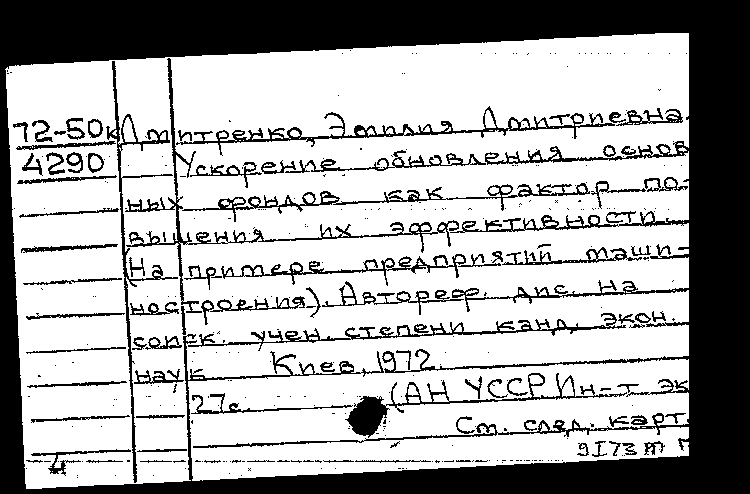 72-50к Дмитренко, Эмилия Дмитриевна.
4290 Ускорение обновления основ
ных фондов как фактор по-
вышения их эффективности.
(На примере предприятий маши-
ностроения). Автореф. дис. на
соиск. учен. степени канд. экон.
наук Киев, 1972.
27с. (АН УССР Ин-т эк
См. след. карт.
4